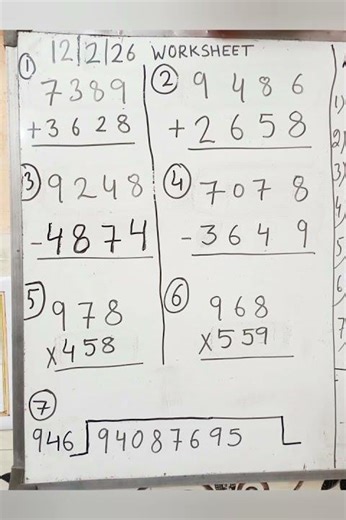 12/2/26 WORKSHEET
① 7389
+3628
② 9486
+2658
③ 9248
-4874
④ 7078
-3649
⑤ 978
×458
⑥ 968
×559
⑦
946 94087695
1)
2)
3)
4,
5,
6,
7,